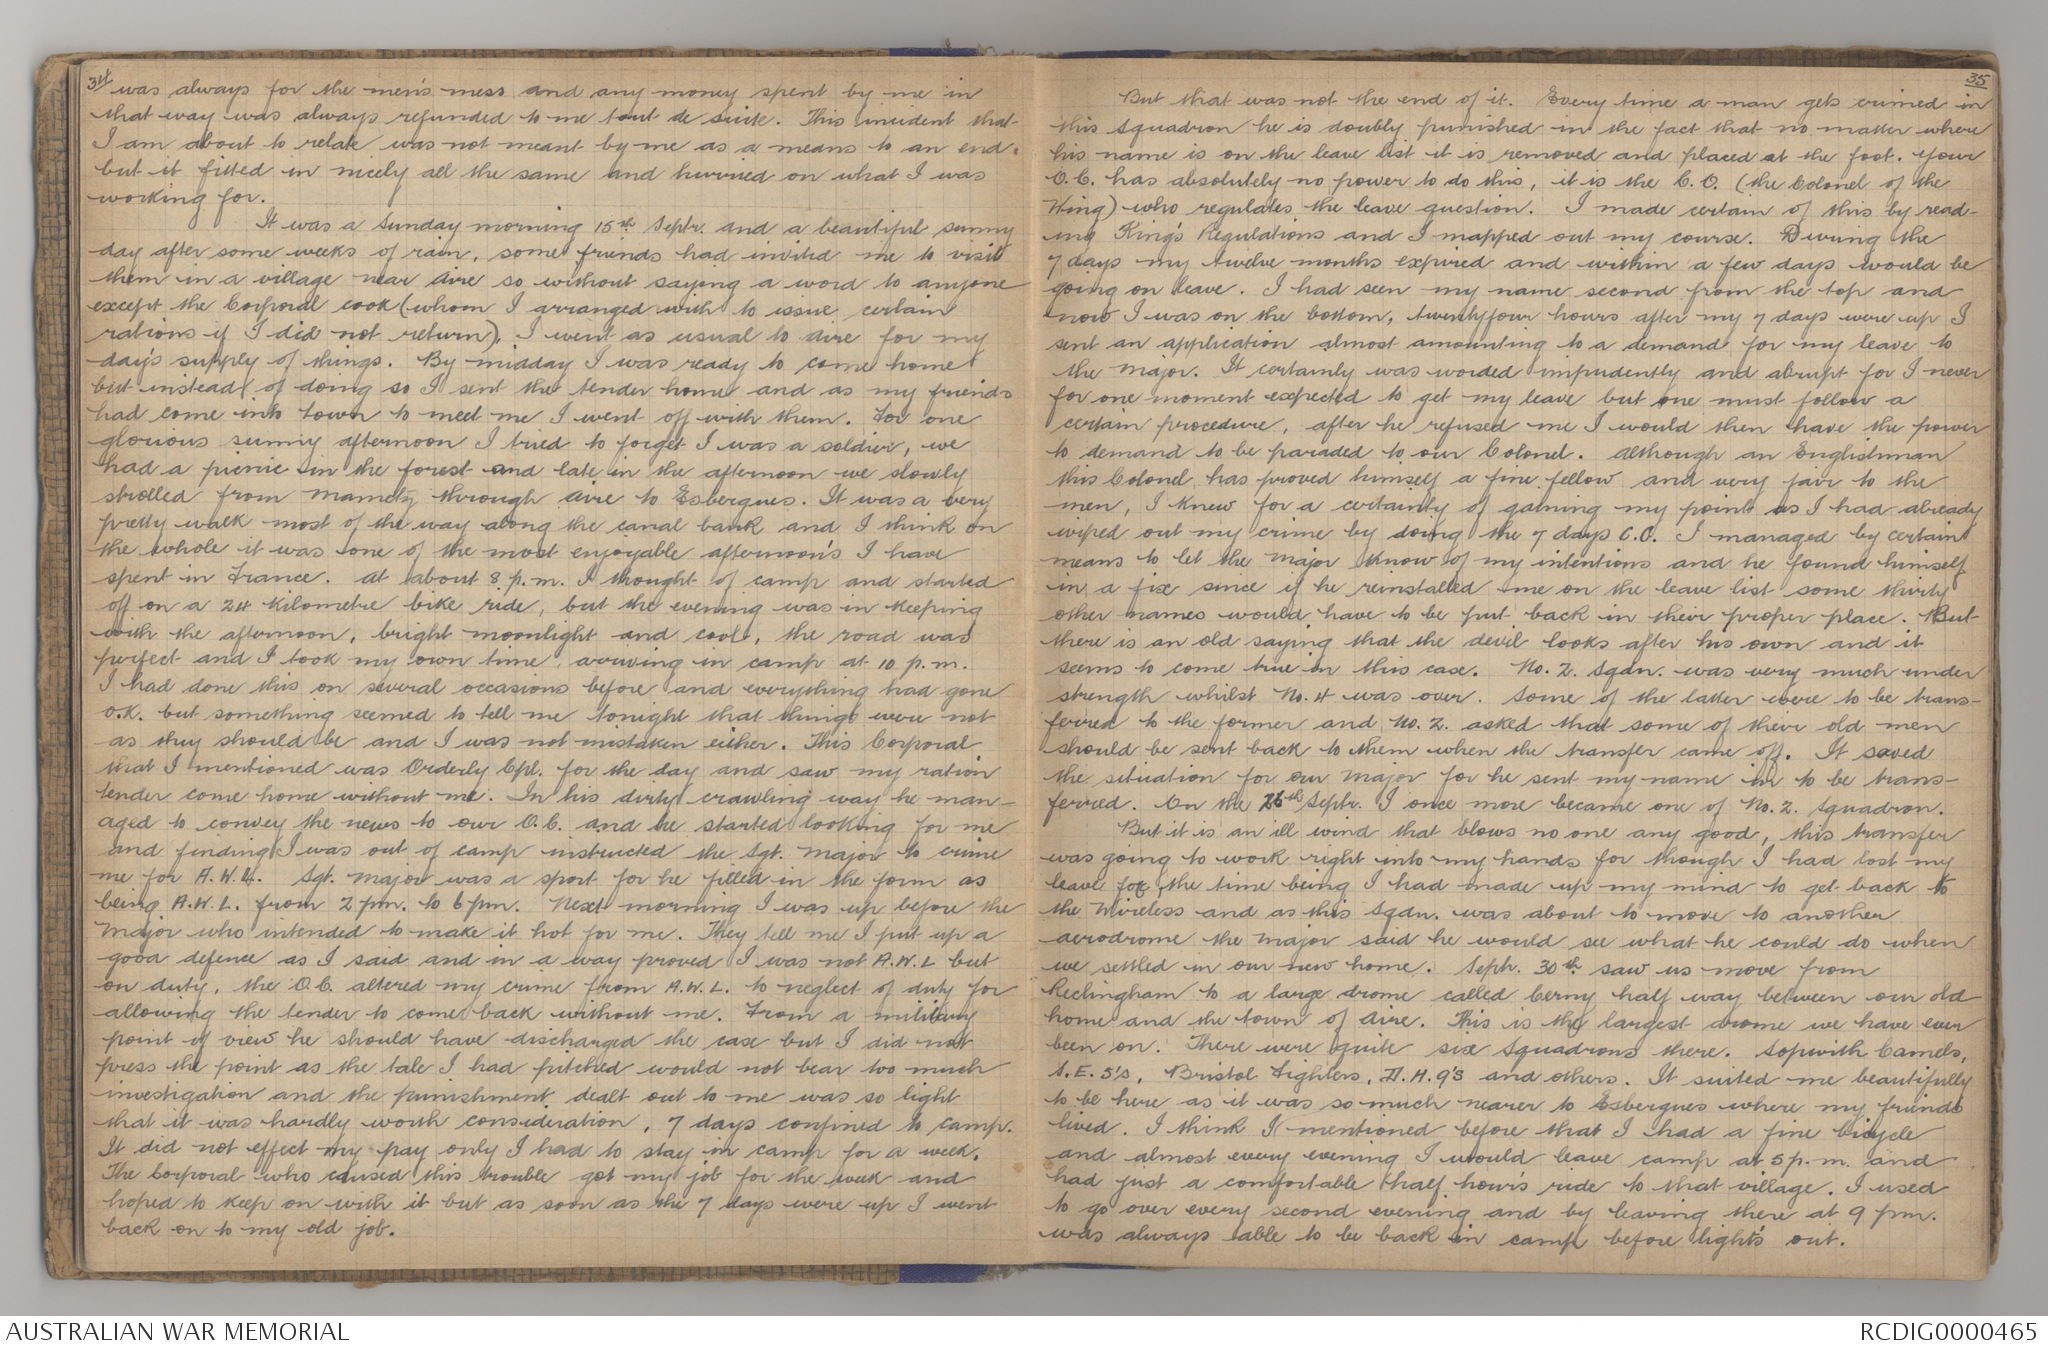 34
was always for the men's mess and any money spent by me in
that way was always refunded to me tout de suite. This incident that
I am about to relate was not meant by me as a means to an end.
but it fitted in nicely all the same and hurried on what I was
working for.
It was a Sunday morning 15th Septr. and a beautiful sunny
day after some weeks of rain, some friends had invited me to visit
them in a village near Aire so without saying a word to anyone
except the Corporal cook (whom I arranged with to issue certain
rations if I did not return), I went as usual to Aire for my
day's supply of things. By midday I was ready to come home
but instead of doing so I sent the tender home and as my friends
had come into town to meet me I went off with them. For one
glorious sunny afternoon I tried to forget I was a soldier, we
had a picnic in the forest and late in the afternoon we slowly
strolled from Mametz through Aire to Esbergues. It was a very
pretty walk most of the way along the canal bank and I think on
the whole it was one of the most enjoyable afternoon's I have
spent in France. At about 8 p.m. I thought of camp and started
off on a 24 kilometre bike ride, but the evening was in keeping
with the afternoon, bright moonlight and cool, the road was
perfect and I took my own time, arriving in camp at 10 p.m.
I had done this on several occasions before and everything had gone
O.K. but something seemed to tell me tonight that things were not
as they should be and I was not mistaken either. This Corporal
that I mentioned was Orderly Cpl. for the day and saw my ration
tender come home without me. In his dirty crawling way he man-
aged to convey the news to our O.C. and he started looking for me
and finding I was out of camp instructed the Sgt. Major to crime
me for A.W.L. Sgt. Major was a sport for he filled in the form as
being A.W.L. from 2 pm. to 6 pm. Next morning I was up before the
Major who intended to make it hot for me. They tell me I put up a
good defence as I said and in a way proved I was not A.W.L but
on duty, the O.C. altered my crime from A.W.L. to neglect of duty for
allowing the tender to come back without me. From a military
point of view he should have discharged the case but I did not
press the point as the tale I had pitched would not bear too much
investigation and the punishment dealt out to me was so light
that it was hardly worth consideration, 7 days confined to camp.
It did not effect my pay only I had to stay in camp for a week.
The Corporal who caused this trouble got my job for the week and
hoped to keep on with it but as soon as the 7 days were up I went
back on to my old job.
35
But that was not the end of it. Every time a man gets crimed in
this Squadron he is doubly punished in the fact that no matter where
his name is on the leave list it is removed and placed at the foot. Your
O.C. has absolutely no power to do this, it is the C.O. (the Colonel of the
Wing) who regulates the leave question. I made certain of this by read-
ing King's Regulations and I mapped out my course. During the
7 days my twelve months expired and within a few days would be
going on leave. I had seen my name second from the top and
now I was on the bottom, twentyfour hours after my 7 days were up I
sent an application almost amounting to a demand for my leave to
the Major. It certainly was worded impudently and abrupt for I never
for one moment expected to get my leave but one must follow a
certain procedure, after he refused me I would then have the power
to demand to be paraded to our Colonel. Although an Englishman
this Colonel has proved himself a fine fellow and very fair to the
men, I knew for a certainty of gaining my point as I had already
wiped out my crime by doing the 7 days C.C. I managed by certain
means to let the Major know of my intentions and he found himself
in a fix since if he reinstalled me on the leave list some thirty
other names would have to be put back in their proper place. But
there is an old saying that the devil looks after his own and it
seems to come true in this case. No. 2. Sqdn. was very much under
strength whilst No. 4 was over. Some of the latter were to be trans-
ferred to the former and No. 2. asked that some of their old men
should be sent back to them when the transfer came off. It saved
the situation for our Major for he sent my name in to be trans-
ferred. On the 26th Septr. I once more became one of No. 2. Squadron.
But it is an ill wind that blows no one any good, this transfer
was going to work right into my hands for though I had lost my
leave for the time being I had made up my mind to get back to
the Wireless and as this Sqdn. was about to move to another
aerodrome the Major said he would see what he could do when
we settled in our new home. Septr. 30th saw us move from
Reclingham to a large drome called Serny half way between our old
home and the town of Aire. This is the largest drome we have ever
been on. There were quite six Squadrons there. Sopwith Camels,
S.E. 5's, Bristol Fighters, D.H. 9's and others. It suited me beautifully
to be here as it was so much nearer to Esbergues where my friends
lived. I think I mentioned before that I had a fine bicycle
and almost every evening I would leave camp at 5 p.m. and
had just a comfortable half hours ride to that village. I used
to go over every second evening and by leaving there at 9 pm.
was always able to be back in camp before lights out.
AUSTRALIAN WAR MEMORIAL
RCDIG0000465